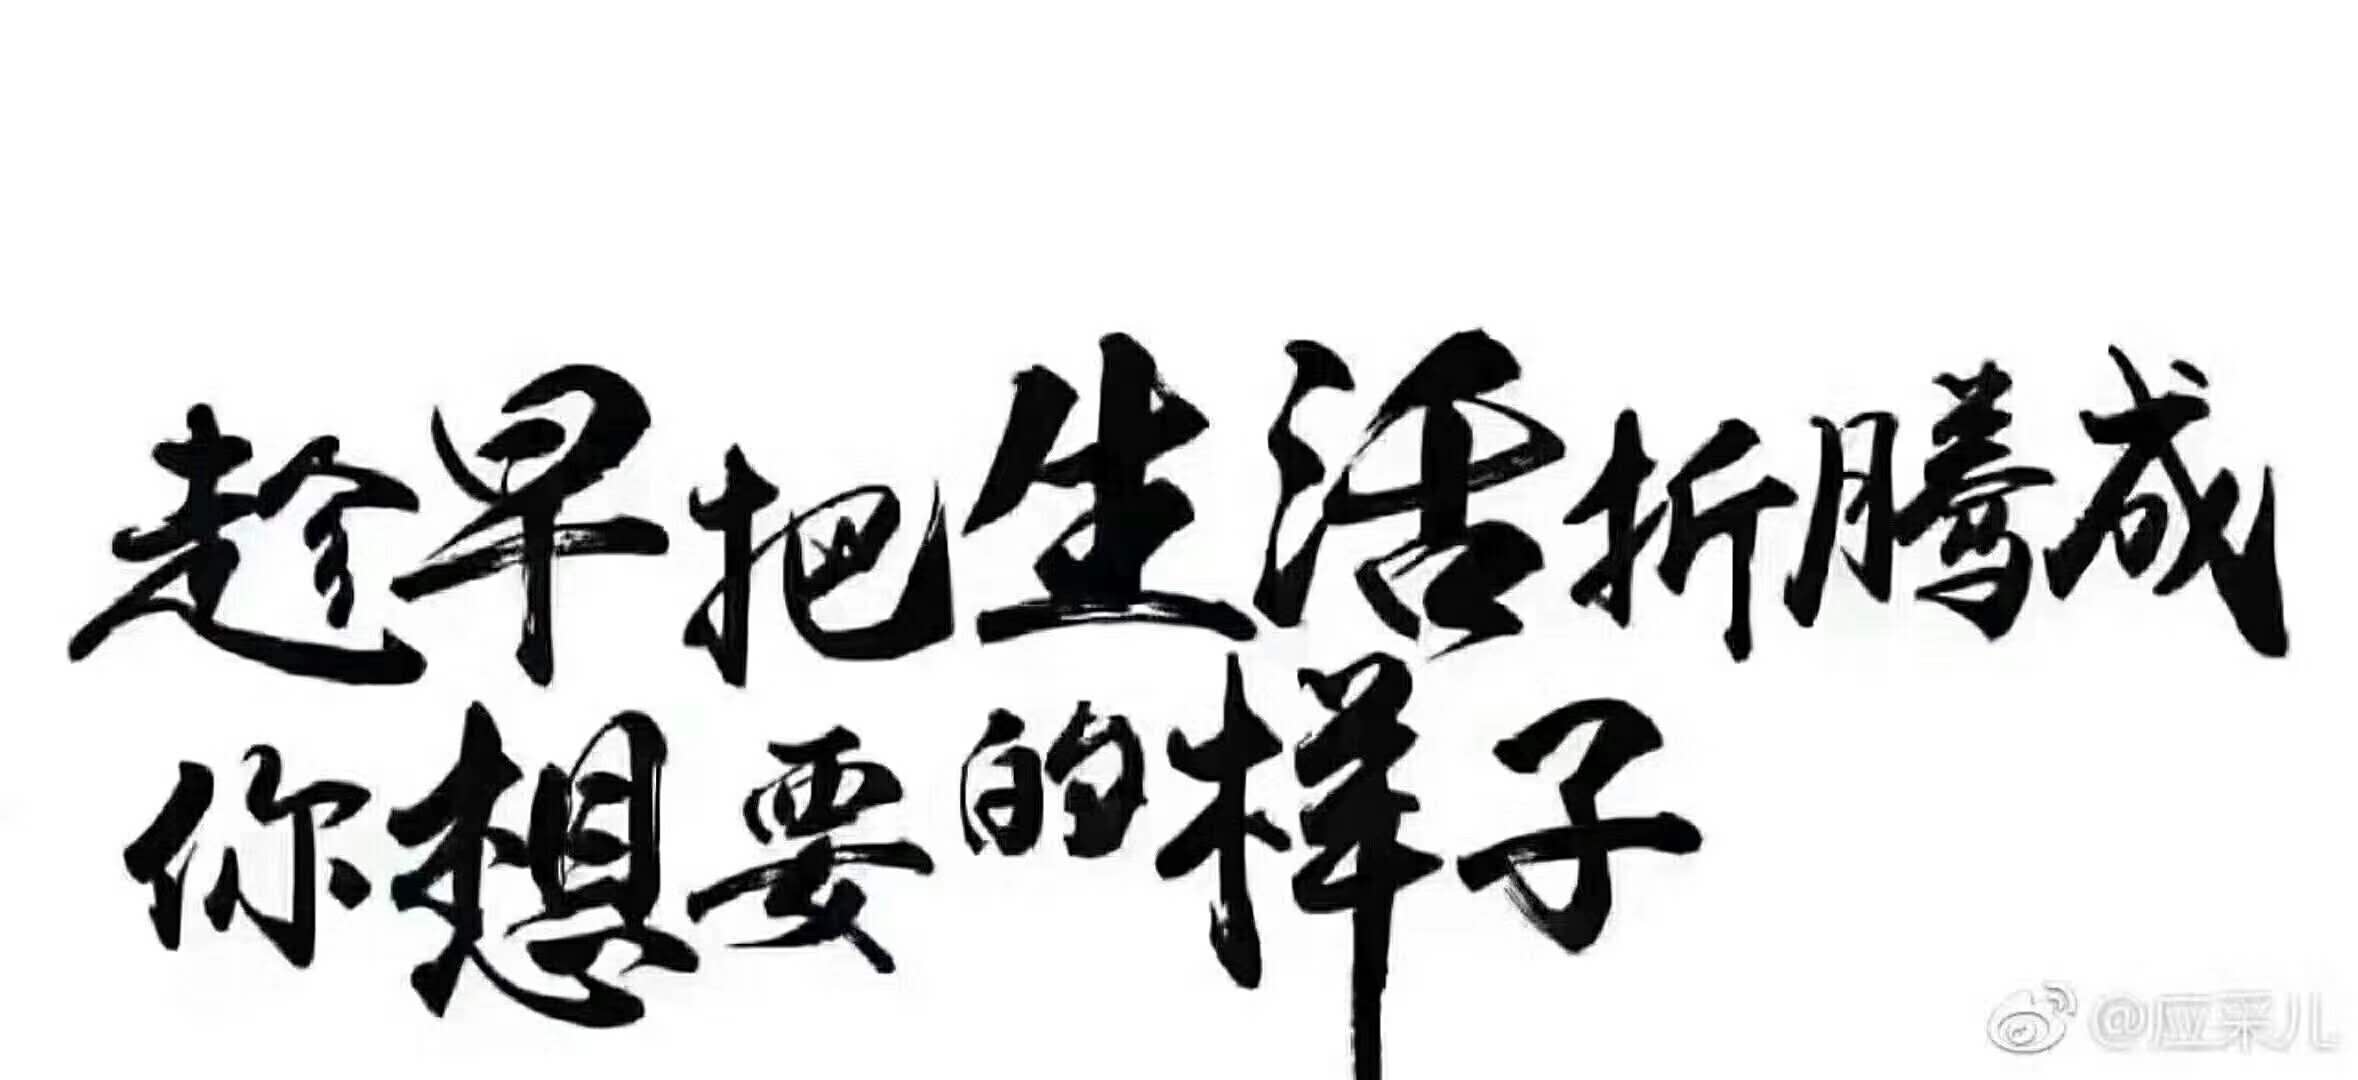 趁早把生活折腾成
你想要的样子
@应采儿